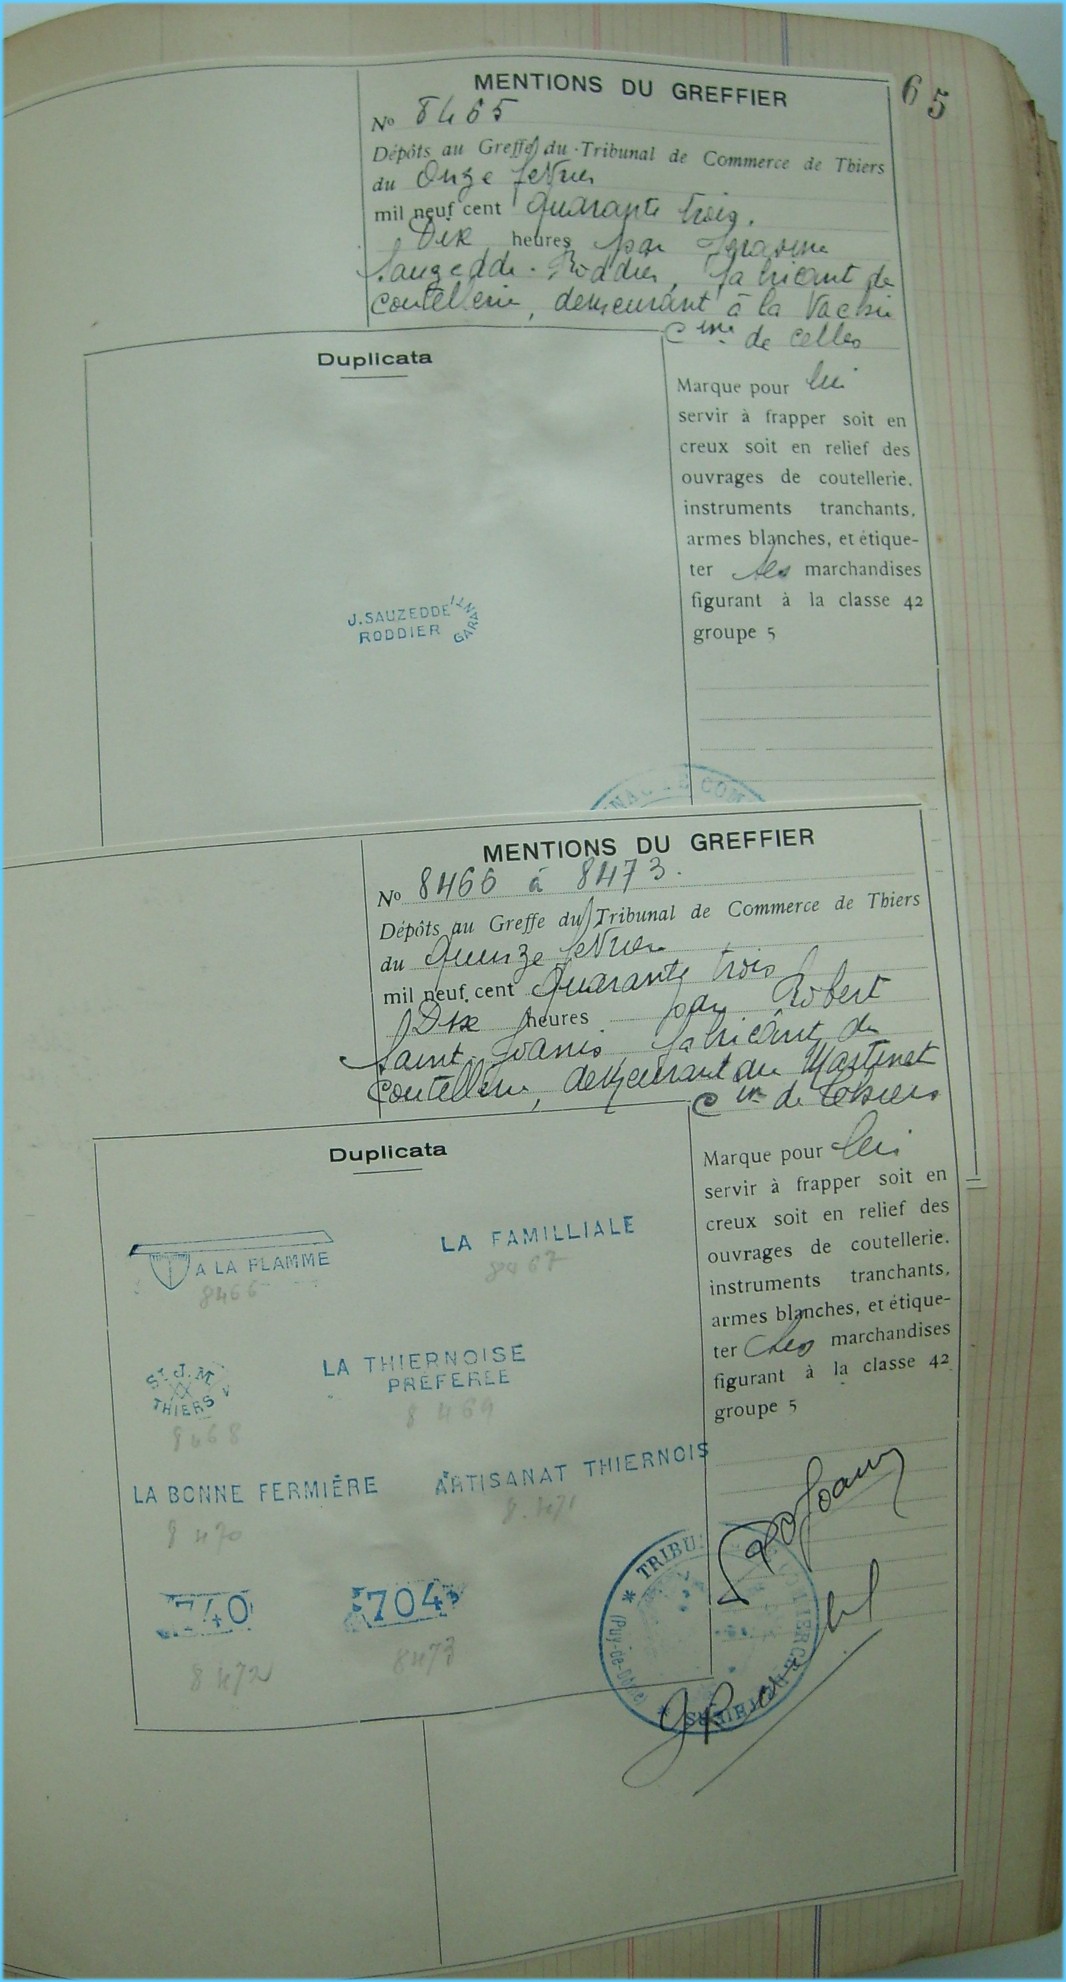 65
MENTIONS DU GREFFIER
No 8465
Dépôts au Greffe du Tribunal de Commerce de Thiers
du Onze fevrier
mil neuf cent quarante trois.
Dix heures par
Sauzedde-Roddier, fabricant de
coutellerie, demeurant à la Vachie
Cne de Celles
Duplicata
Marque pour lui
servir à frapper soit en
creux soit en relief des
ouvrages de coutellerie.
instruments tranchants,
armes blanches, et étique-
ter les marchandises
figurant à la classe 42
groupe 5
J. SAUZEDDE
RODDIER
GARANTI
MENTIONS DU GREFFIER
No 8466 à 8473.
Dépôts au Greffe du Tribunal de Commerce de Thiers
du quinze fevrier
mil neuf cent quarante trois
Dix heures par Robert
Saint-Joanis fabricant de
coutellerie, demeurant au Martinet
Cne de Thiers
Duplicata
Marque pour lui
servir à frapper soit en
creux soit en relief des
ouvrages de coutellerie.
instruments tranchants,
armes blanches, et étique-
ter les marchandises
figurant à la classe 42
groupe 5
A LA FLAMME
8466
LA FAMILLIALE
8467
ST. J. M
THIERS
8468
LA THIERNOISE
PRÉFÉRÉE
8469
LA BONNE FERMIÈRE
8470
ARTISANAT THIERNOIS
8.471
740
8472
704
8473
* TRIBUNAL DE COMMERCE DE THIERS *
(Puy-de-Dôme)